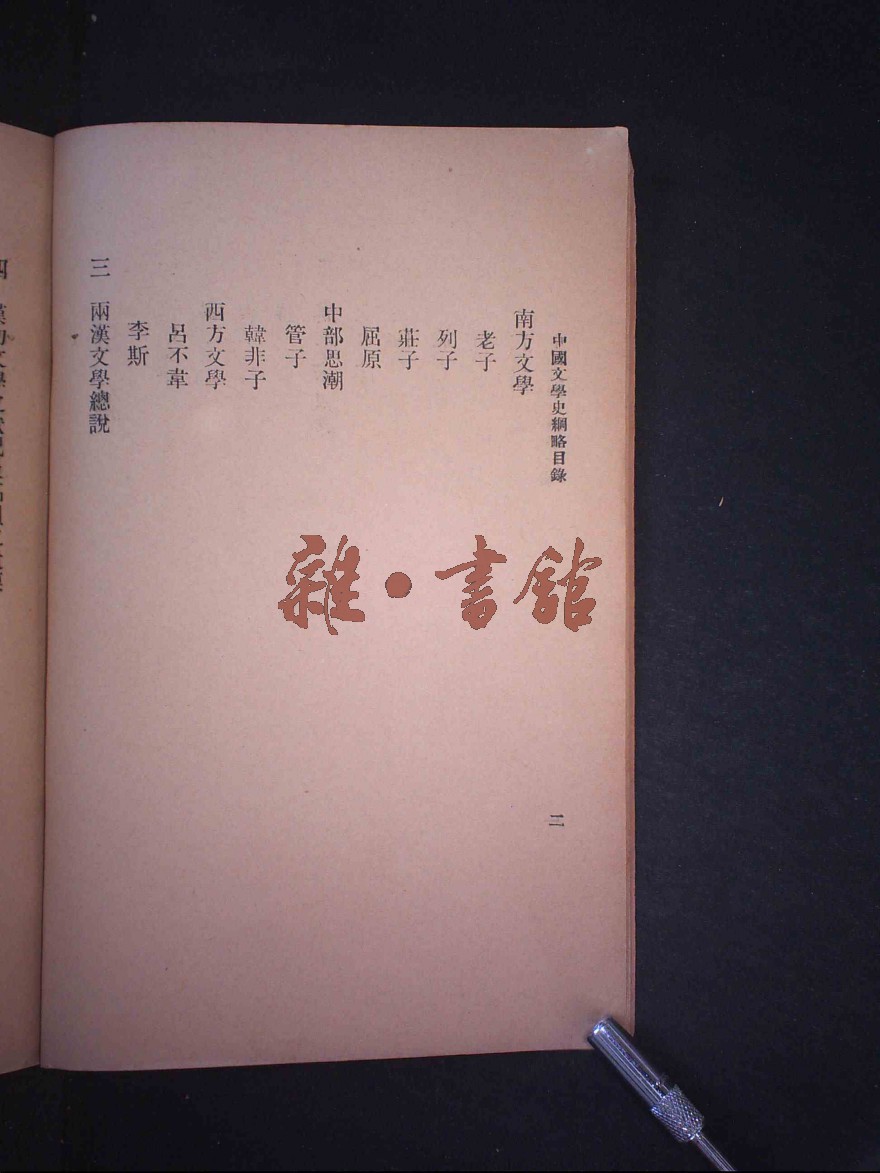 中國文學史綱略目錄
二
南方文學
老子
列子
莊子
屈原
中部思潮
管子
韓非子
西方文學
呂不韋
李斯
三　兩漢文學總說
雜・書館